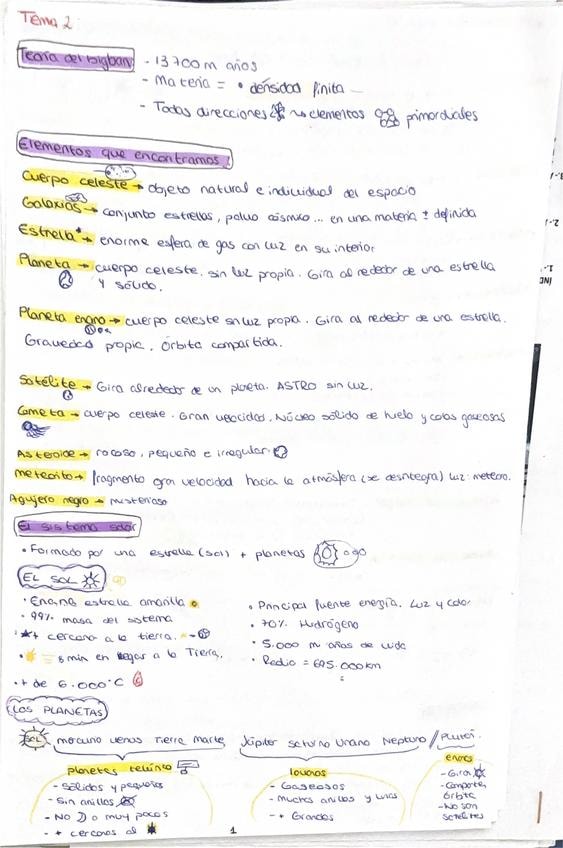 Tema 2
Teoría del bigban
- 13700 m años
- Materia = • densidad finita
- Todas direcciones elementos primordiales
Elementos que encontramos:
Cuerpo celeste → objeto natural e individual del espacio
Galaxias → conjunto estrellas, polvo cósmico... en una materia ± definida
Estrella → enorme esfera de gas con luz en su interior
Planeta → cuerpo celeste, sin luz propia. Gira al rededor de una estrella
y sólido.
Planeta enano → cuerpo celeste sin luz propia. Gira al rededor de una estrella.
Gravedad propia. Órbita compartida.
Satélite → Gira alrededor de un planeta. ASTRO sin luz.
Cometa → cuerpo celeste. Gran velocidad. Núcleo sólido de hielo y colas gaseosas
Asteroide → rocoso, pequeño e irregular.
Meteorito → fragmento gran velocidad hacia la atmósfera (se desintegra) luz: meteoro.
Agujero negro → misterioso
El sistema solar
• Formado por una estrella (sol) + planetas
EL SOL
• Enana estrella amarilla
• 99% masa del sistema
• + cercana a la tierra.
• = 8 min en llegar a la Tierra.
• + de 6.000°C
• Principal fuente energía. Luz y calor
• 70% Hidrógeno
• 5.000 m años de vida
• Radio = 695.000km
LOS PLANETAS
SOL mercurio venus Tierra Marte Júpiter Saturno Urano Neptuno / Plutón.
planetas telúrico
- Sólidos y pequeños
- Sin anillos
- NO o muy pocos
- + cercanos al
- Gaseosos
- Muchos anillos y lunas
- + Grandes
enanos
- Giran
- Comparten
órbita
- No son
satélites
1